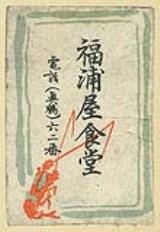 福浦屋食堂
電話(真鶴)六二番